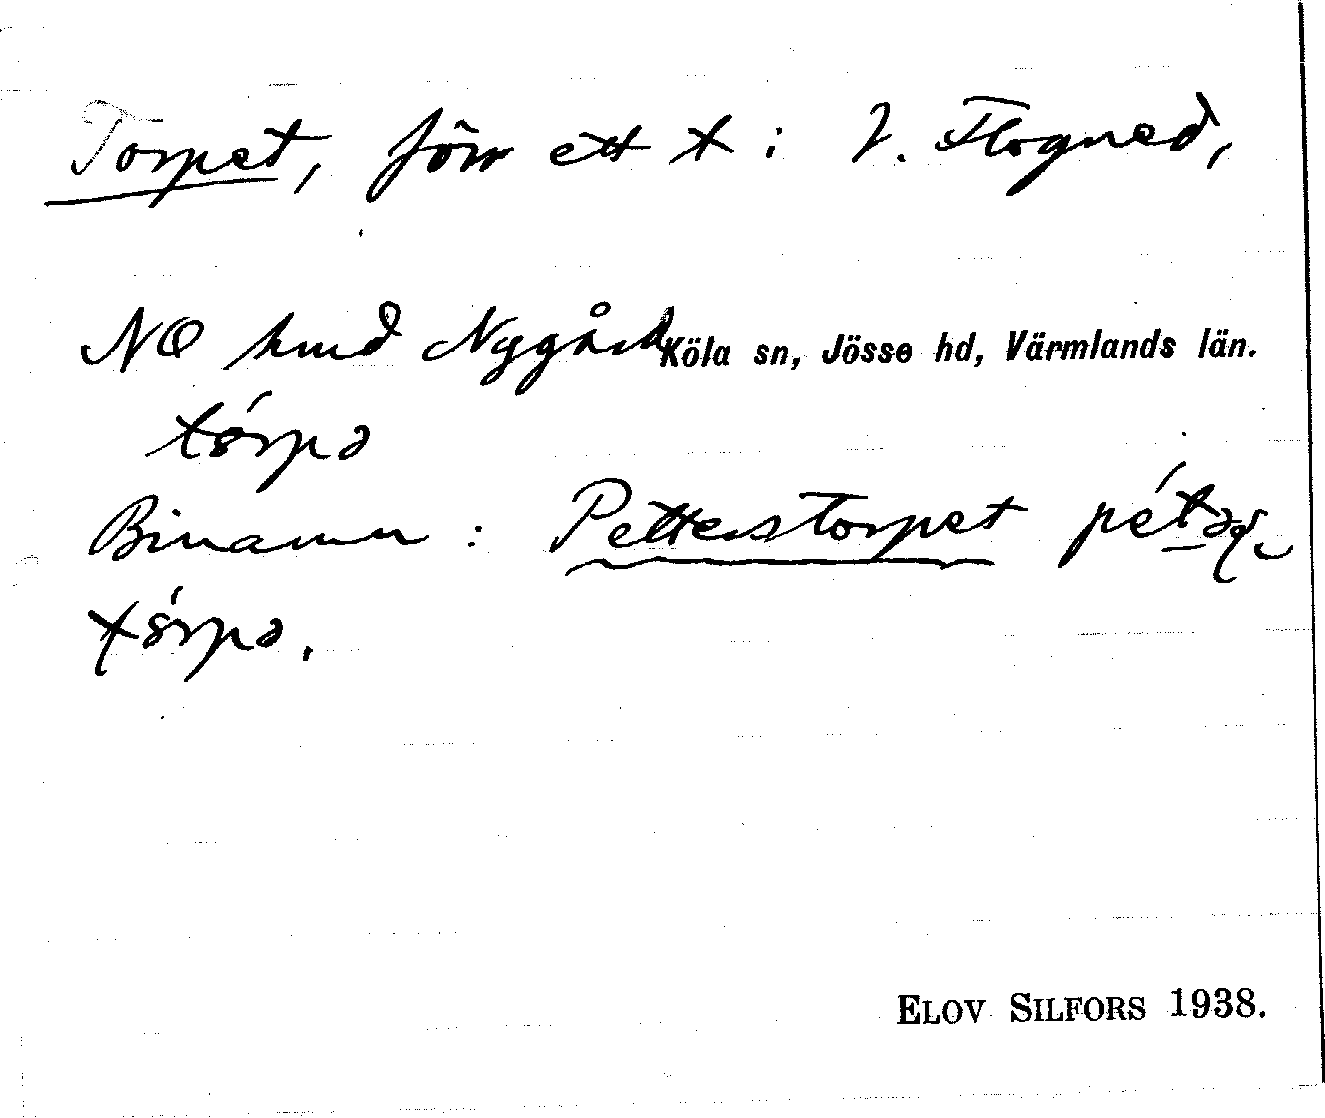 Torpet, förr ett t i V. Flogned,
NO hmd Nygård Köla sn, Jösse hd, Värmlands län.
tórpə
Binamn: Petterstorpet pétəʂ
tórpə.
ELOV SILFORS 1938.